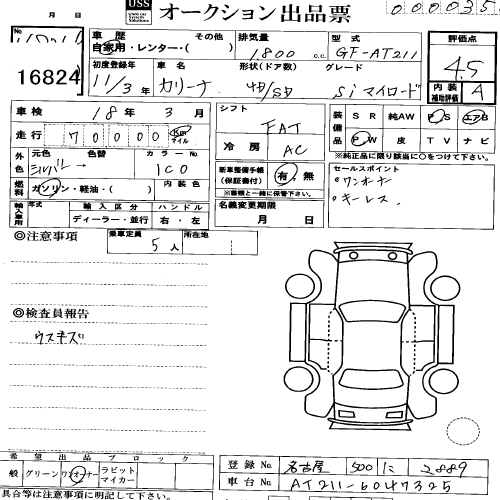 USS オークション出品票
月 日
No.
16824
車歴 自家用・レンター・( ) その他
排気量 1,800 c.c.
型式 GF-AT211
評価点 4.5
内装 補助評価 A
初度登録年月 11/3 年
車名 カリーナ
形状(ドア数) 4D/SD
グレード Si マイロード
車検 18年 3月
走行 70000 Km マイル
シフト FAT
冷房 AC
装備品 SR 純AW PS エアB
PW 皮 TV ナビ
※純正品に限り該当に○をつけて下さい。
外色 元色 シルバー 色替 カラーNo. 1C0
燃料 ガソリン・軽油・( ) 内装色
新車整備手帳(保証書付) 有 無
※書類と一緒に保管下さい。
セールスポイント
・ワンオーナー
・キーレス.
輸入車用 年式 輸入区分 ディーラー・並行 ハンドル 右・左
名義変更期限 月 日
◎注意事項
乗車定員 5人
所在地
◎検査員報告
ウスキズ
希望出品ブロック
一般 グリーン ワンオーナー ラビットマイカー
具合等は注意事項に明記して下さい。
登録No. 名古屋 500 に 2889
車台No. AT211-6047325